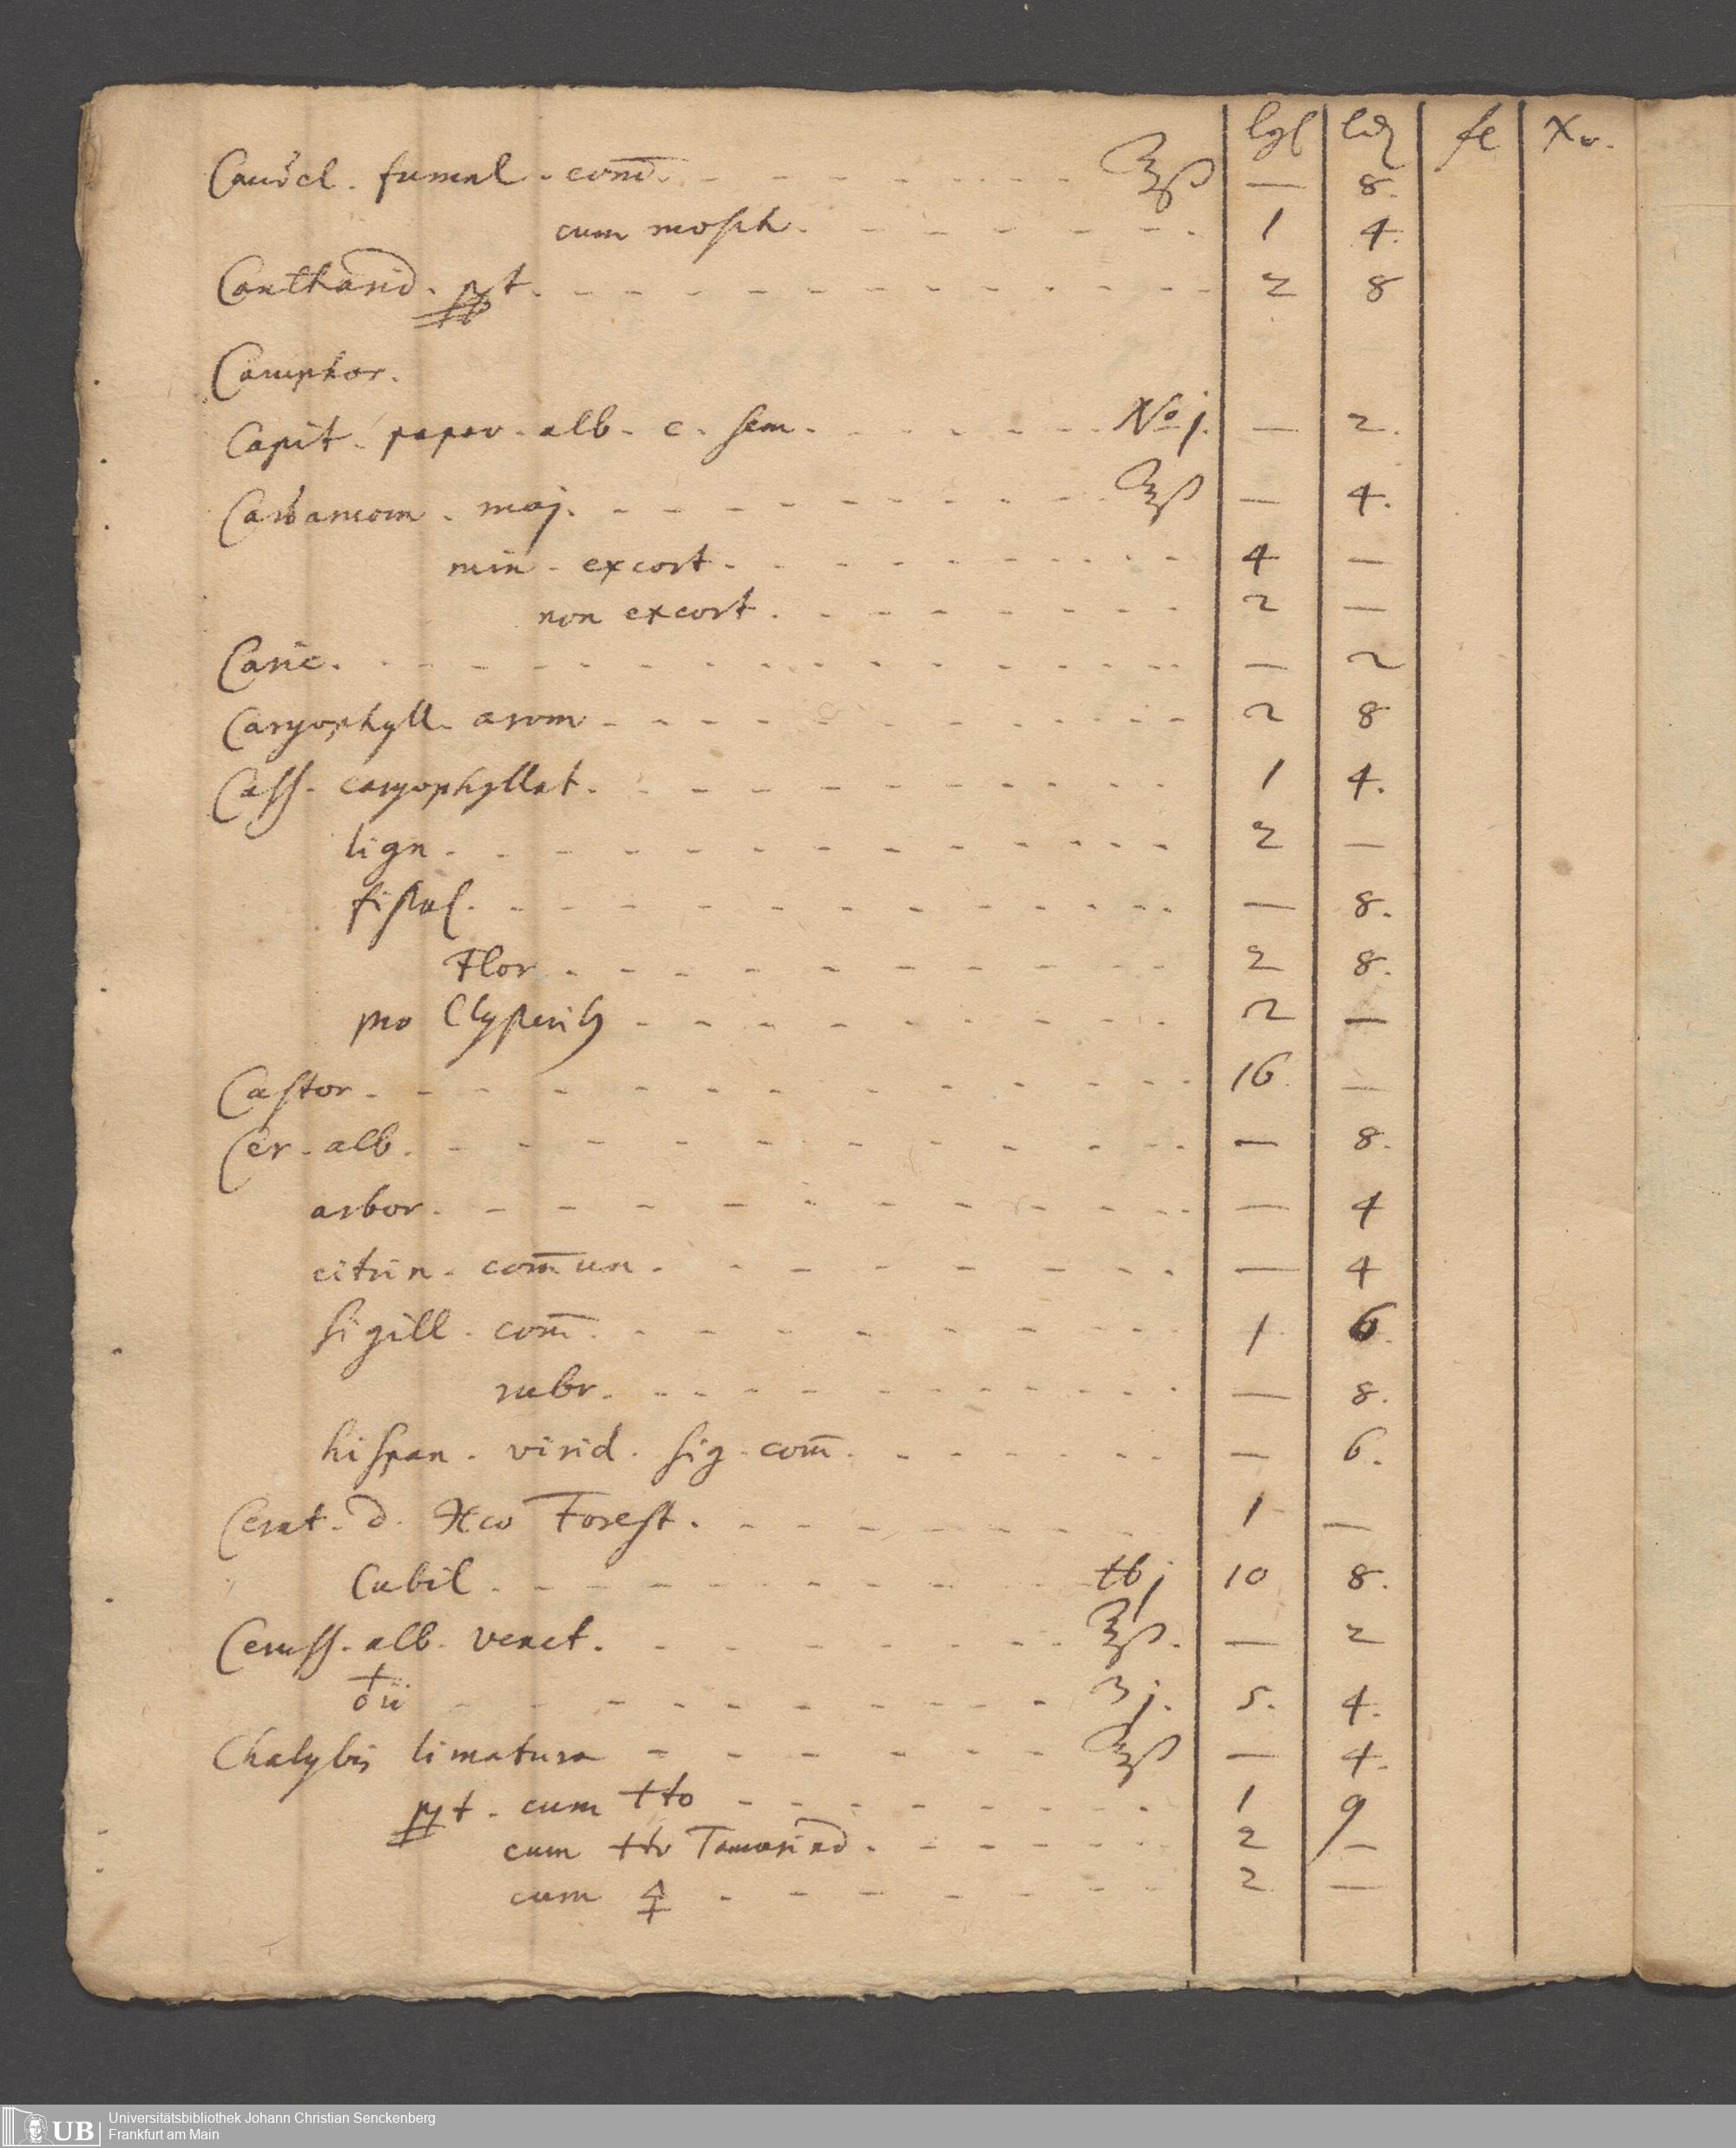 lgl ld fl Xr.
Candel. fumal. com̄. ℥ß — 8.
cum mosch. 1 4.
Cantharid. ppt. 2 8
Camphor.
Capit. papav. alb. c. sem. No j. — 2.
Cardamom. maj. ℥ß — 4.
min. excort. 4 —
non excort. 2 —
Caric. — 2
Caryophyll. arom. 2 8
Cass. caryophyllat. 1 4.
lign. 2 —
fistul. — 8.
Flor. 2 8.
pro Clysterib 2 —
Castor. 16. —
Cer. alb. — 8.
arbor. — 4
citrin. com̄un. — 4
sigill. com̄. 1 6.
rubr. — 8.
hispan. virid. sig. com̄. — 6.
Cerat. d. Forest. 1 —
Cubil. ℔j 10 8.
Ceruss. alb. venet. ℥ß. — 2
♁ii ʒj. 5. 4.
Chalybis limatura ℥ß — 4.
ppt. cum tto 1 9
cum tto Tamarind. 2 —
cum 🜍 2 —
Universitätsbibliothek Johann Christian Senckenberg
UB
Frankfurt am Main